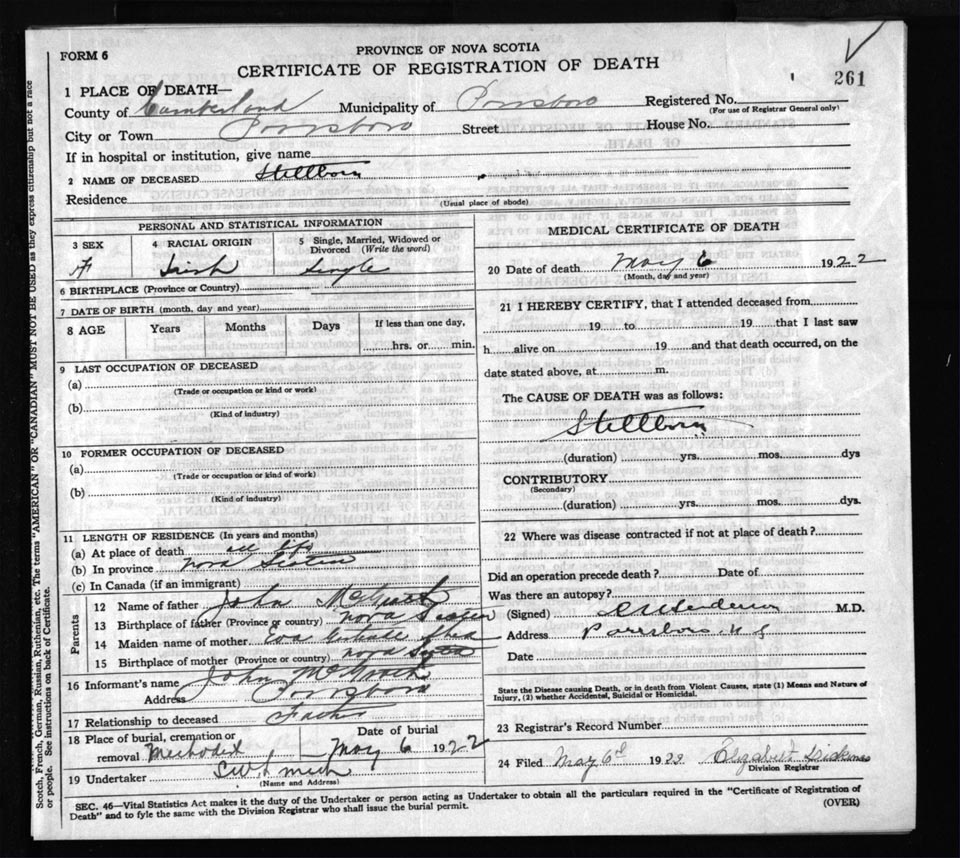 FORM 6
PROVINCE OF NOVA SCOTIA
CERTIFICATE OF REGISTRATION OF DEATH
261
1 PLACE OF DEATH—
County of Cumberland Municipality of Parrsboro Registered No.
(For use of Registrar General only)
City or Town Parrsboro Street House No.
If in hospital or institution, give name
2 NAME OF DECEASED Stillborn
Residence
(Usual place of abode)
PERSONAL AND STATISTICAL INFORMATION
3 SEX 4 RACIAL ORIGIN 5 Single, Married, Widowed or Divorced (Write the word)
F Irish Single
6 BIRTHPLACE (Province or Country)
7 DATE OF BIRTH (month, day and year)
8 AGE Years Months Days If less than one day,
hrs. or min.
9 LAST OCCUPATION OF DECEASED
(a)
(Trade or occupation or kind or work)
(b)
(Kind of industry)
10 FORMER OCCUPATION OF DECEASED
(a)
(Trade or occupation or kind of work)
(b)
(Kind of industry)
11 LENGTH OF RESIDENCE (In years and months)
(a) At place of death all life
(b) In province Nova Scotia
(c) In Canada (if an immigrant)
Parents
12 Name of father John
13 Birthplace of father (Province or country) Nova Scotia
14 Maiden name of mother Eva
15 Birthplace of mother (Province or country) Nova Scotia
16 Informant's name John
Address Parrsboro
17 Relationship to deceased Father
18 Place of burial, cremation or removal Methodist
Date of burial
May 6 1922
19 Undertaker
(Name and Address)
MEDICAL CERTIFICATE OF DEATH
20 Date of death May 6 1922
(Month, day and year)
21 I HEREBY CERTIFY, that I attended deceased from
19 to 19 that I last saw
h alive on 19 and that death occurred, on the
date stated above, at m.
The CAUSE OF DEATH was as follows:
Stillborn
(duration) yrs. mos. dys
CONTRIBUTORY
(Secondary)
(duration) yrs. mos. dys.
22 Where was disease contracted if not at place of death?
Did an operation precede death? Date of
Was there an autopsy?
(Signed) M.D.
Address Parrsboro, N.S
Date
State the Disease causing Death, or in death from Violent Causes, state (1) Means and Nature of
Injury, (2) whether Accidental, Suicidal or Homicidal.
23 Registrar's Record Number
24 Filed May 6th 1923 Elizabeth
Division Registrar
SEC. 46—Vital Statistics Act makes it the duty of the Undertaker or person acting as Undertaker to obtain all the particulars required in the "Certificate of Registration of
Death" and to fyle the same with the Division Registrar who shall issue the burial permit. (OVER)
Scotch, French, German, Russian, Ruthenian, etc. The terms "AMERICAN" OR "CANADIAN" MUST NOT BE USED as they express citizenship but not a race
or people. See instructions on back of Certificate.